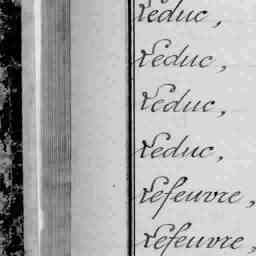 Leduc,
Leduc,
Leduc,
Leduc,
Lefeuvre,
Lefeuvre,